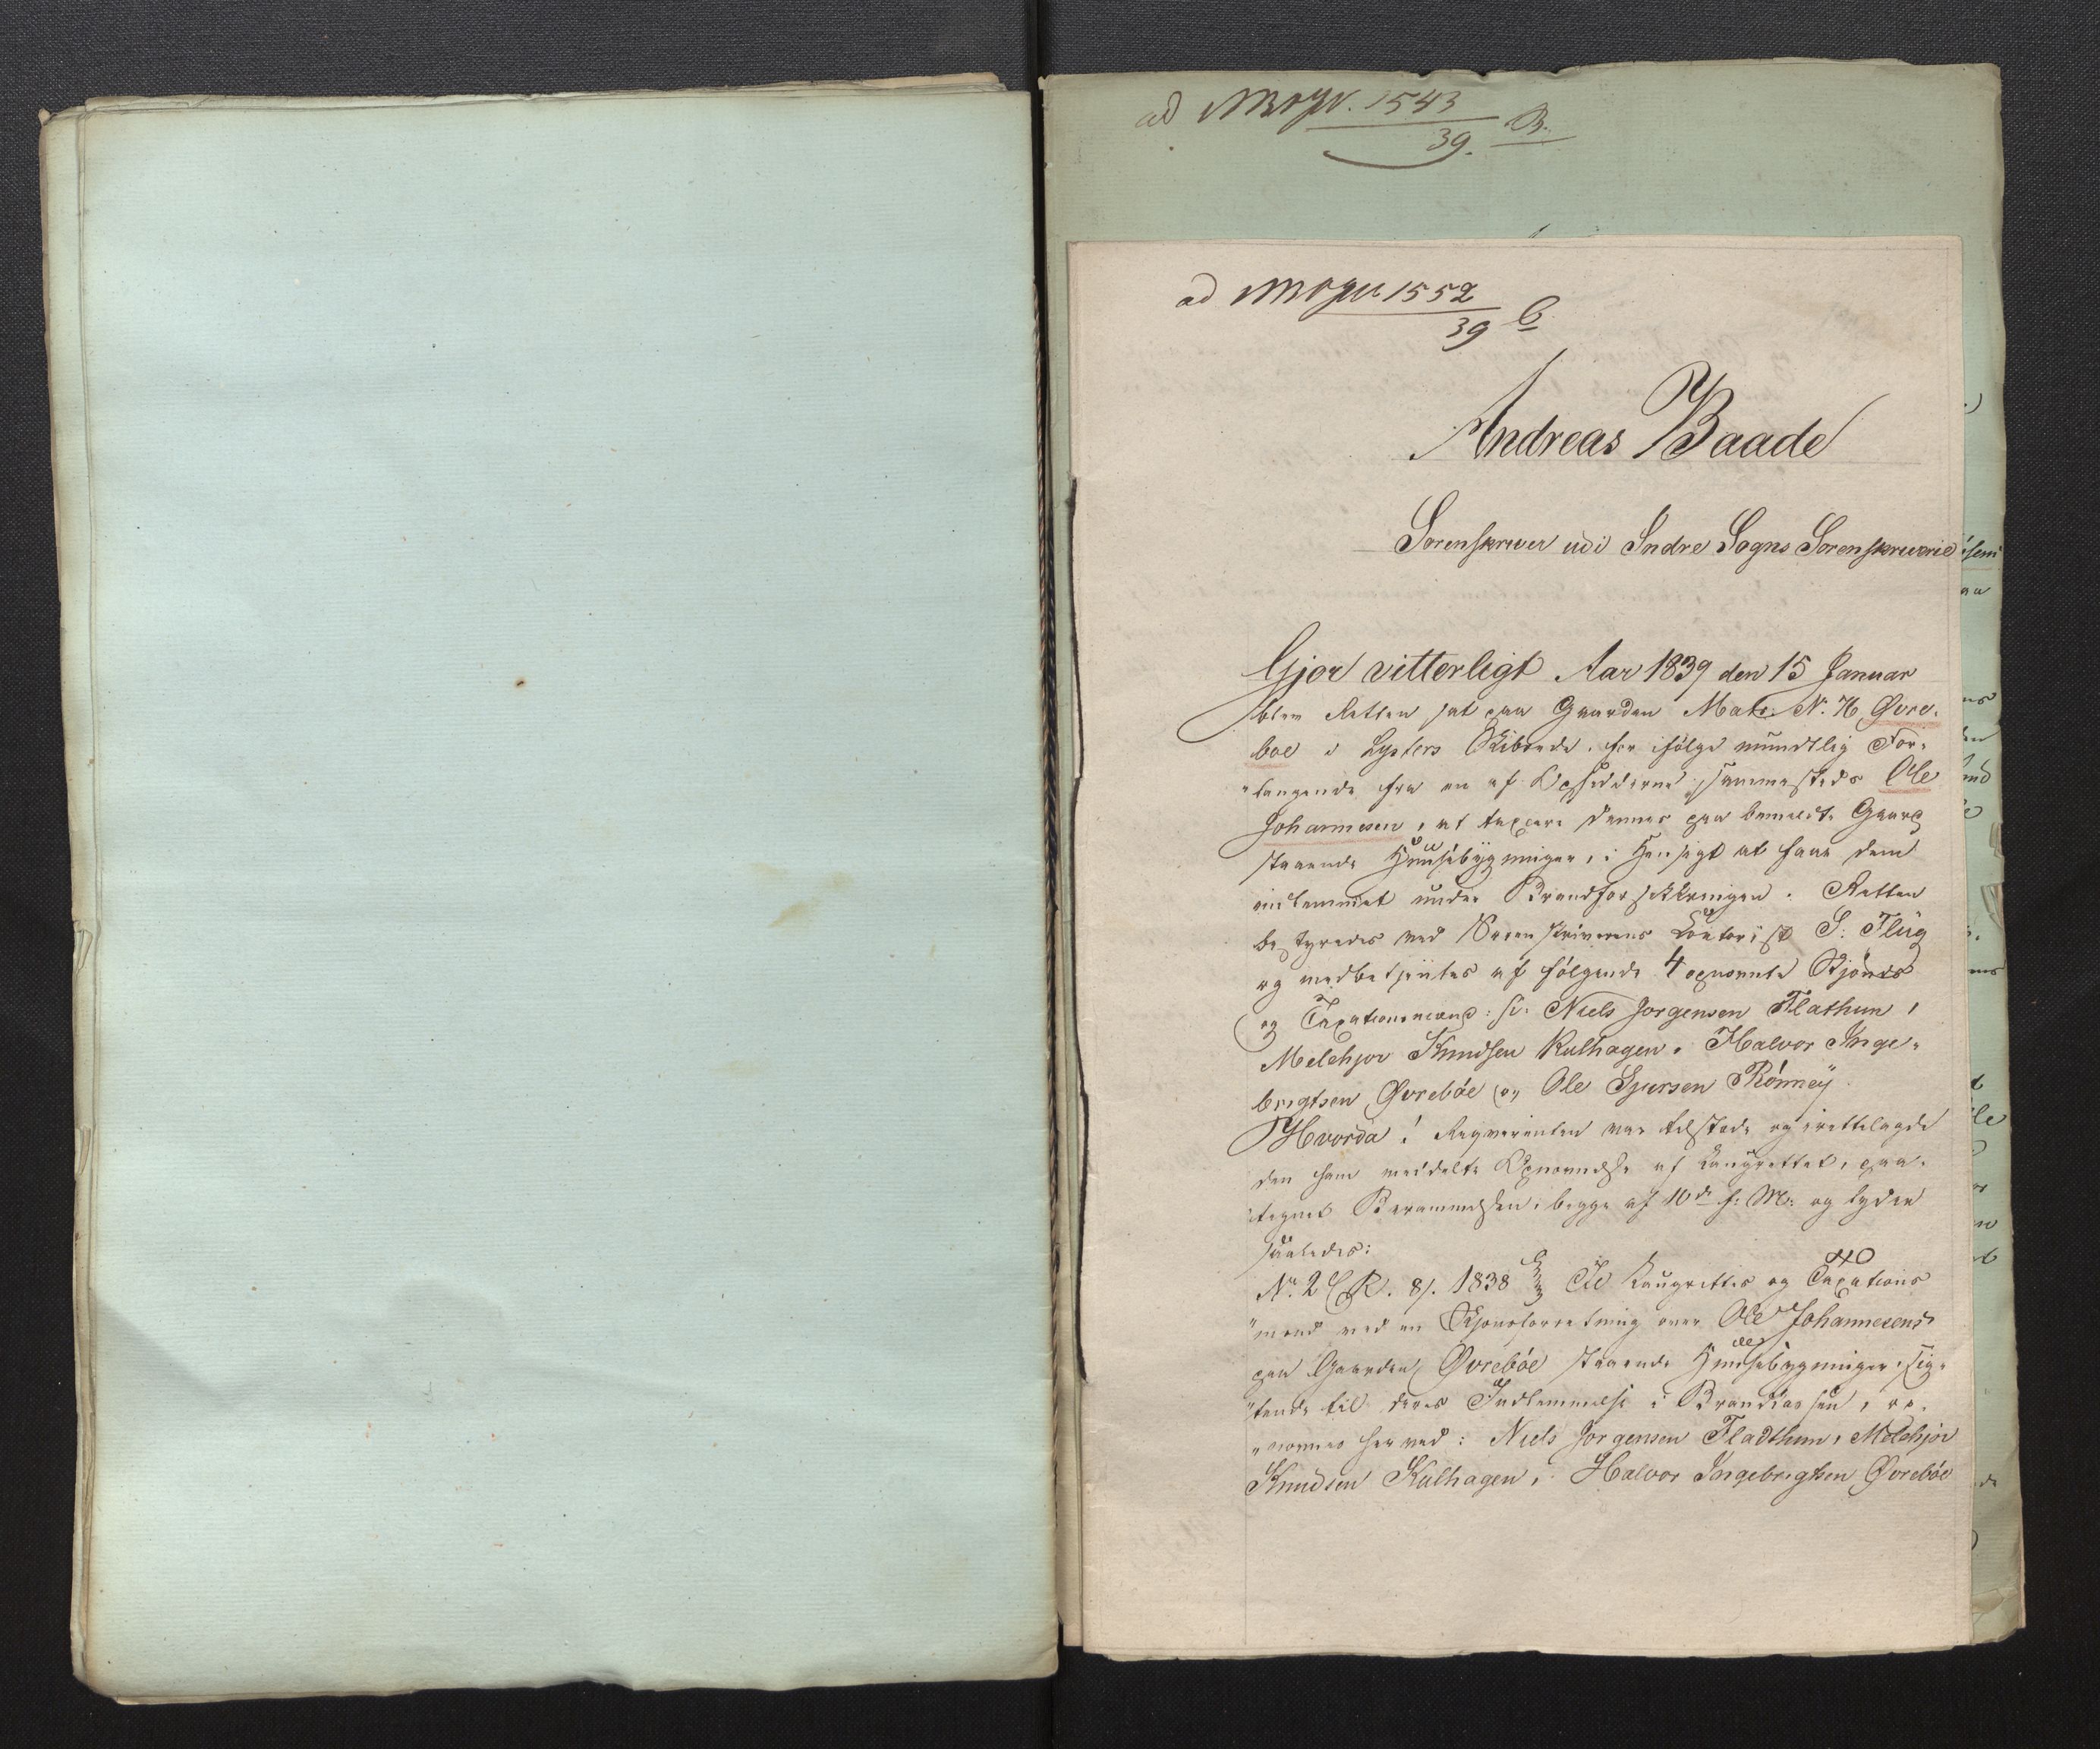 ad 1543
39. B.
ad 1552
39
Andreas Baade
Sorenskriver udi Indre Sogns Sorenskriverie
Gjör vitterligt Aar 1839 den 15 Januar
blev Retten sat paa Gaarden Matr. N. 76 Øvre-
boe i Lysters Skibrede, for ifølge mundtlig For-
"langende fra en af Opsidderne sammesteds Ole
Johannesen, at taxere dennes paa bemeldte Gaard
staaende Huusebygninger, i Hensigt at faae dem
indlemmet under Brandforsikkringen. Retten
bestyredes ved Sorenskriverens Contorist S. Flüg
og medbetjentes af følgende 4 opnævnte Skjöns
og Taxationsmænd: Niels Jorgensen Flathun,
Melchjor Knudsen Kulhagen, Halvor Inge-
brigtsen Øvrebóe og Ole Sjursen Rönneÿ
Hvorda! Reqvirenten var tilstede og irettelagde
den ham meddelte Opnævnelse af Laugrettet, paa-
tegnet Berammelsen, begge af 10de f: M: og lyder
saaledes:
No. 2 R. 8/. 1838 Til Laugrettes og Taxations
"mænd ved en Skjönsforretning over Ole Johannesens
paa Gaarden Øvrebóe staaende Huusebygninger, sig-
"tende til deres Indlemmelse i Brandcassen, op-
"nævnes herved: Niels Jorgensen Fladthun, Melchjor
Knudsen Kulhagen, Halvor Ingebrigtsen Øvrebóe